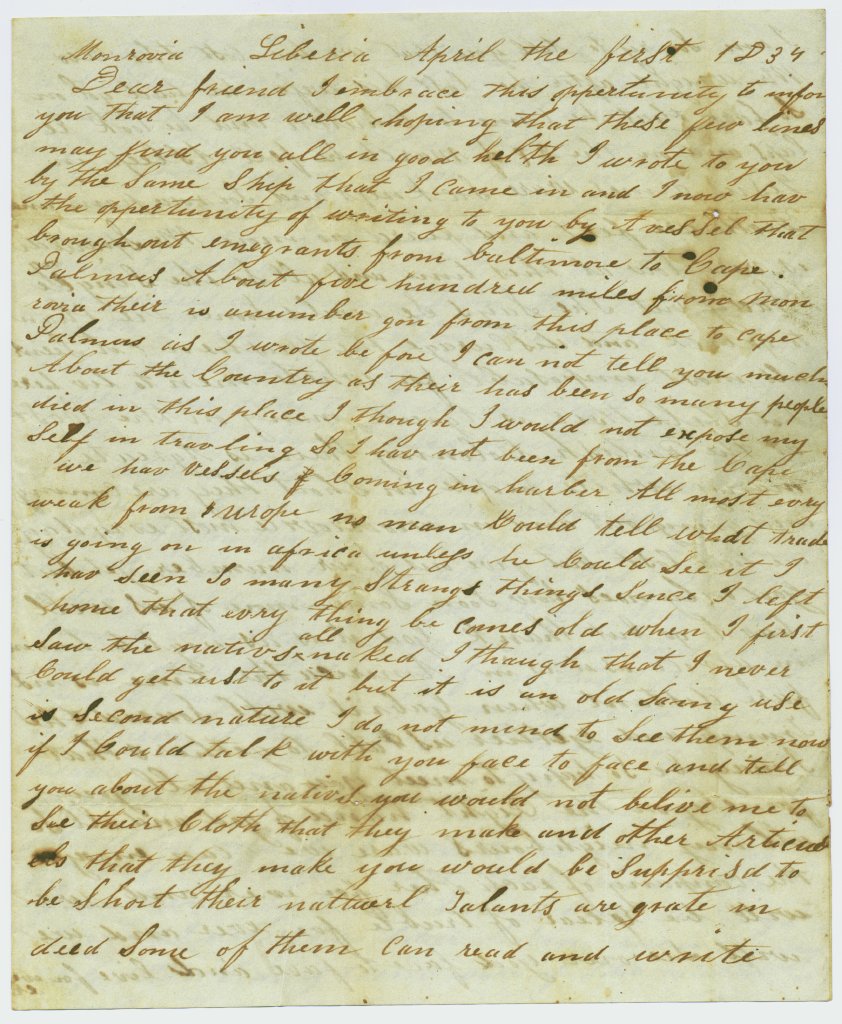 Monrovia Liberia April the first 1834
Dear friend I embrace this oppertunity to infor
you that I am well & hoping that these few lines
may find you all in good helth I wrote to you
by the Same Ship that I came in and I now hav
the oppertunity of writing to you by A vessel that
brough out emegrants from baltimore to Cape
Palmus About five hundred miles from Mon
rovia their is anumber gon from this place to cape
Palmus as I wrote before I can not tell you much
About the Country as their has been so many people
died in this place I though I would not expose my
Self in travling So I hav not been from the Cape
we hav vessels Coming in harber All most evry
weak from europe no man Could tell what trade
is going on in africa unless he Could See it I
hav seen So many Strangs things Since I left
home that evry thing be comes old when I first
all
Saw the nativs naked I though that I never
Could get ust to it but it is an old Saing use
is Second nature I do not mind to See them now
if I Could talk with you face to face and tell
you about the nativs you would not belive me to
See their Cloth that they make and other Articu
els that they make you would be Supprisd to
be Short their natturl Talants are grate in
deed Some of them can read and write